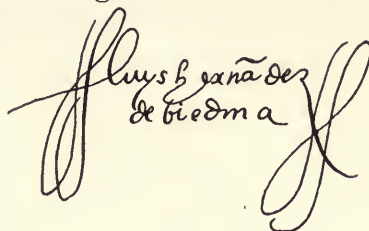 luys herñadez
de biedma